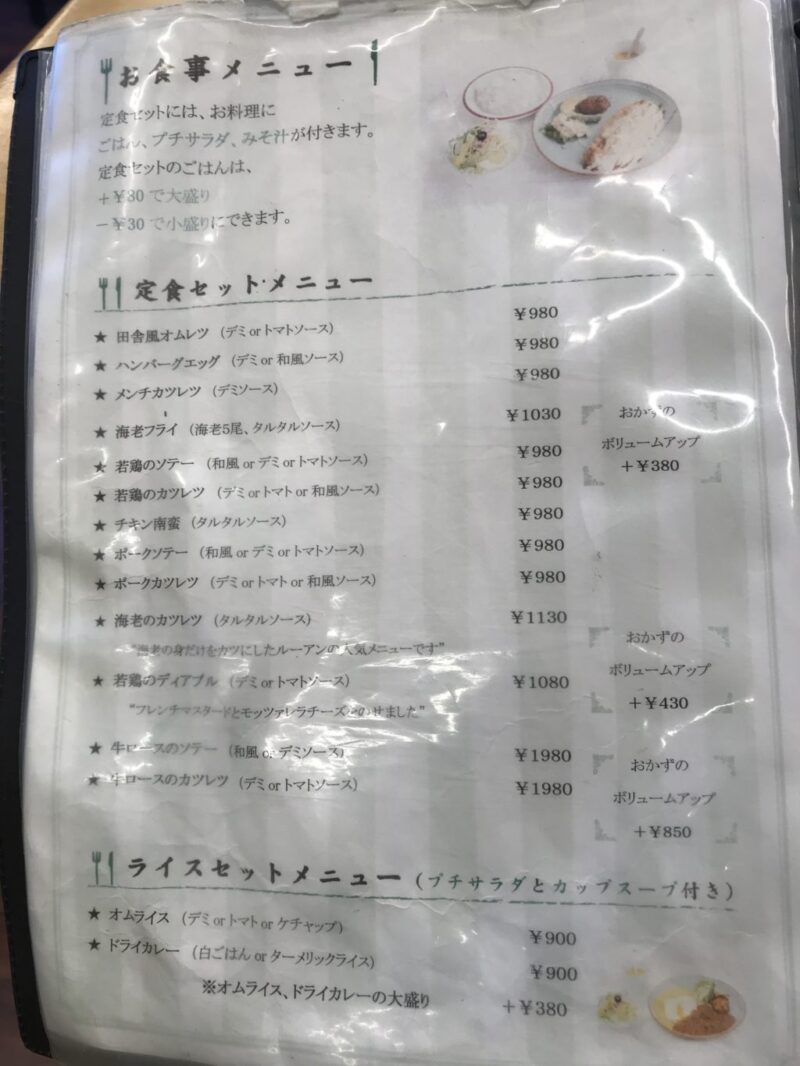 お食事メニュー
定食セットには、お料理に
ごはん、プチサラダ、みそ汁が付きます。
定食セットのごはんは、
+¥30 で大盛り
-¥30 で小盛りにできます。
定食セット・メニュー
★ 田舎風オムレツ (デミ or トマトソース) ¥980
★ ハンバーグエッグ (デミ or 和風ソース) ¥980
★ メンチカツレツ (デミソース) ¥980
★ 海老フライ (海老5尾、タルタルソース) ¥1030
★ 若鶏のソテー (和風 or デミ or トマトソース) ¥980
★ 若鶏のカツレツ (デミ or トマト or 和風ソース) ¥980
★ チキン南蛮 (タルタルソース) ¥980
★ ポークソテー (和風 or デミ or トマトソース) ¥980
★ ポークカツレツ (デミ or トマト or 和風ソース) ¥980
おかずの
ボリュームアップ
+¥380
★ 海老のカツレツ (タルタルソース) ¥1130
"海老の身だけをカツにしたルーアンの人気メニューです"
★ 若鶏のディアブル (デミ or トマトソース) ¥1080
"フレンチマスタードとモッツァレラチーズをのせました"
おかずの
ボリュームアップ
+¥430
★ 牛ロースのソテー (和風 or デミソース) ¥1980
★ 牛ロースのカツレツ (デミ or トマトソース) ¥1980
おかずの
ボリュームアップ
+¥850
ライスセットメニュー (プチサラダとカップスープ付き)
★ オムライス (デミ or トマト or ケチャップ) ¥900
★ ドライカレー (白ごはん or ターメリックライス) ¥900
※オムライス、ドライカレーの大盛り +¥380